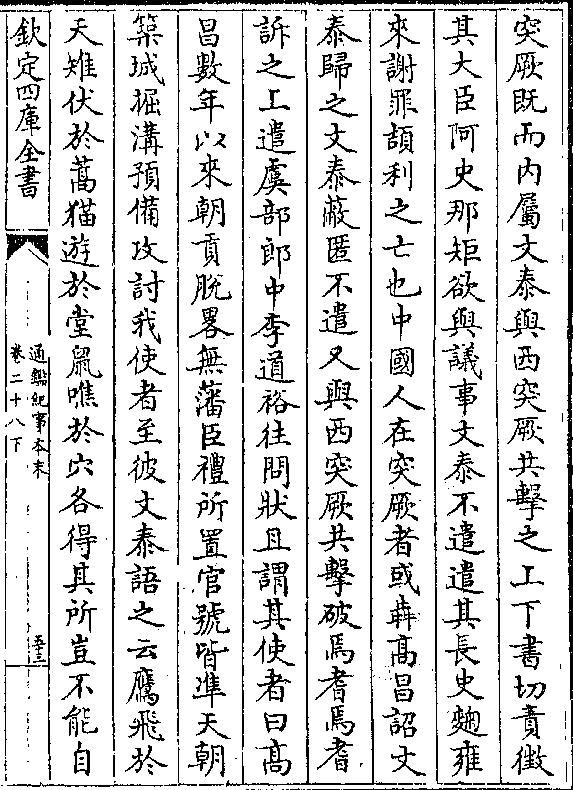 突厥既而内屬文泰與西突厥共擊之上下書切責徴
其大臣阿史那矩欲與議事文泰不遣遣其長史麴雍
來謝罪頡利之亡也中國人在突厥者或奔髙昌詔文
泰歸之文泰蔽匿不遣又與西突厥共擊破焉耆焉耆
訴之上遣虞部郎中李道裕往問狀且謂其使者曰髙
昌數年以來朝貢脱畧無藩臣禮所置官號皆凖天朝
築城掘溝預備攻討我使者至彼文泰語之云鷹飛於
天雉伏於蒿猫遊於堂鼠噍於穴各得其所豈不能自
欽定四庫全書
通鑑紀事本末
卷二十八下
五十三